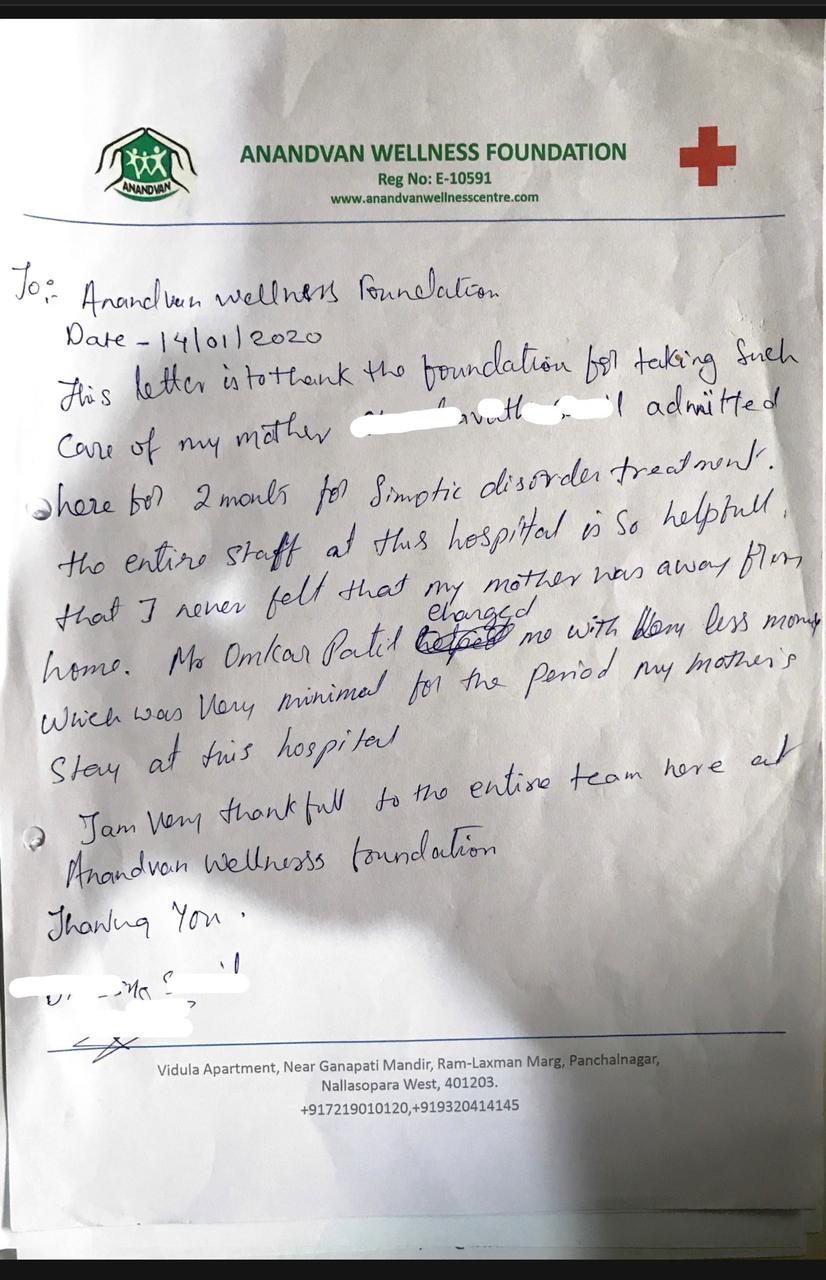 ANANDVAN
ANANDVAN WELLNESS FOUNDATION
Reg No: E-10591
www.anandvanwellnesscentre.com
To:- Anandvan wellness Foundation
Date - 14/01/2020
This letter is to thank the foundation for taking such
Care of my mother admitted
here for 2 months for Simptic disorder treatment.
the entire staff at this hospital is so helpfull,
that I never felt that my mother was away from
home. Mr Omkar Patil charged me with very less money
which was very minimal for the period my mother's
Stay at this hospital
I am very thankfull to the entire team here at
Anandvan Wellnesss foundation
Thanking You.
Vidula Apartment, Near Ganapati Mandir, Ram-Laxman Marg, Panchalnagar,
Nallasopara West, 401203.
+917219010120,+919320414145